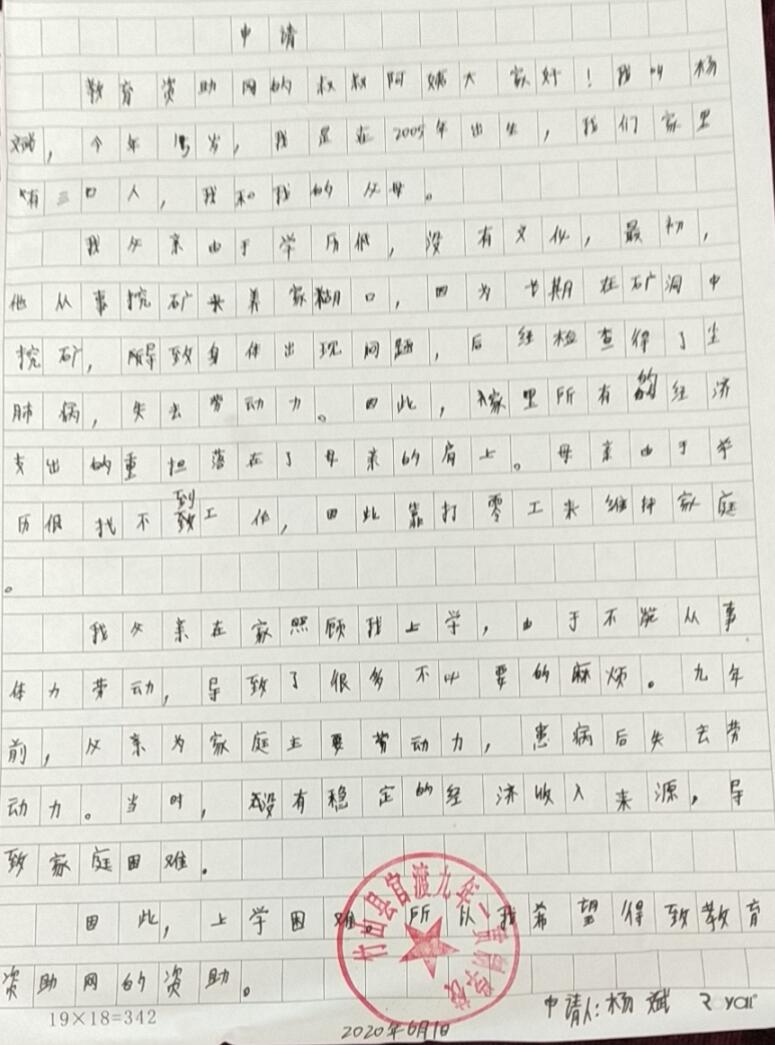 申请
教育资助网的叔叔阿姨大家好！我叫杨
斌，今年15岁，我是在2005年出生，我们家里
有三口人，我和我的父母。
我父亲由于学历低，没有文化，最初，
他从事挖矿来养家糊口，因为长期在矿洞中
挖矿，所导致身体出现问题，后经检查得了尘
肺病，失去劳动力。因此，家里所有的经济
支出的重担落在了母亲的肩上。母亲由于学
历低找不到工作，因此靠打零工来维持家庭
。
我父亲在家照顾我上学，由于不能从事
体力劳动，导致了很多不必要的麻烦。九年
前，父亲为家庭主要劳动力，患病后失去劳
动力。当时，没有稳定的经济收入来源，导
致家庭困难。
因此，上学困难。所以我希望得致教育
资助网的资助。
竹山县官渡九年一贯制学校
申请人：杨斌
19×18=342
2020年6月1日